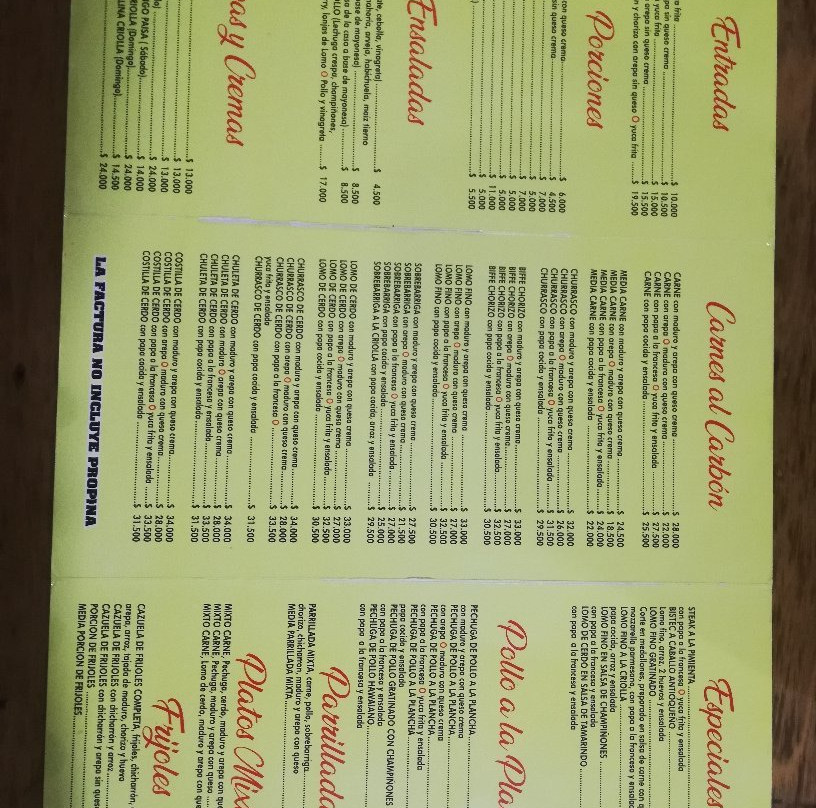 Entradas
a frita ........ $ 10.000
pa sin queso crema ........ $ 10.500
yuca frita ........ $ 15.000
arepa sin queso crema ........ $ 15.500
n y chorizo con arepa sin queso O yuca frita ........ $ 19.500
Porciones
con queso crema ........ $ 6.000
sin queso crema ........ $ 4.500
$ 7.000
$ 5.000
$ 7.000
$ 5.000
$ 5.000
$ 11.000
$ 5.000
$ 5.500
Ensaladas
te, cebolla, vinagreta) ........ $ 4.500
nahoria, arveja, habichuela, maíz tierno
ase de mayonesa) ........ $ 8.500
sa de la casa a base de mayonesa) ........ $ 8.500
LLO (Lechuga crespa, champiñones,
rry, lonjas de Lomo O Pollo y vinagreta ........ $ 17.000
as y Cremas
$ 13.000
$ 13.000
$ 13.000
$ 24.000
IGO PAISA (Sábado) ........ $ 14.000
RIOLLA (Domingo) ........ $ 24.000
$ 14.500
LINA CRIOLLA (Domingo) ........ $ 24.000
Carnes al Carbón
CARNE con maduro y arepa con queso crema ........ $ 28.000
CARNE con arepa O maduro con queso crema ........ $ 22.000
CARNE con papa a la francesa O yuca frita y ensalada ........ $ 27.500
CARNE con papa cocida y ensalada ........ $ 25.500
MEDIA CARNE con maduro y arepa con queso crema ........ $ 24.500
MEDIA CARNE con arepa O maduro con queso crema ........ $ 18.500
MEDIA CARNE con papa a la francesa O yuca frita y ensalada ........ $ 24.000
MEDIA CARNE con papa cocida y ensalada ........ $ 22.000
CHURRASCO con maduro y arepa con queso crema ........ $ 32.000
CHURRASCO con arepa O maduro con queso crema ........ $ 26.000
CHURRASCO con papa a la francesa O yuca frita y ensalada ........ $ 31.500
CHURRASCO con papa cocida y ensalada ........ $ 29.500
BIFFE CHORIZO con maduro y arepa con queso crema ........ $ 33.000
BIFFE CHORIZO con arepa O maduro con queso crema ........ $ 27.000
BIFFE CHORIZO con papa a la francesa O yuca frita y ensalada ........ $ 32.500
BIFFE CHORIZO con papa cocida y ensalada ........ $ 30.500
LOMO FINO con maduro y arepa con queso crema ........ $ 33.000
LOMO FINO con arepa O maduro con queso crema ........ $ 27.000
LOMO FINO con papa a la francesa O yuca frita y ensalada ........ $ 32.500
LOMO FINO con papa cocida y ensalada ........ $ 30.500
SOBREBARRIGA con maduro y arepa con queso crema ........ $ 27.500
SOBREBARRIGA con arepa O maduro con queso crema ........ $ 21.500
SOBREBARRIGA con papa a la francesa O yuca frita y ensalada ........ $ 27.000
SOBREBARRIGA con papa cocida y ensalada ........ $ 25.000
SOBREBARRIGA A LA CRIOLLA con papa cocida, arroz y ensalada ........ $ 29.500
LOMO DE CERDO con maduro y arepa con queso crema ........ $ 33.000
LOMO DE CERDO con arepa O maduro con queso crema ........ $ 27.000
LOMO DE CERDO con papa a la francesa O yuca frita y ensalada ........ $ 32.500
LOMO DE CERDO con papa cocida y ensalada ........ $ 30.500
CHURRASCO DE CERDO con maduro y arepa con queso crema ........ $ 34.000
CHURRASCO DE CERDO con arepa O maduro con queso crema ........ $ 28.000
CHURRASCO DE CERDO con papa a la francesa O
yuca frita y ensalada ........ $ 33.500
CHURRASCO DE CERDO con papa cocida y ensalada ........ $ 31.500
CHULETA DE CERDO con maduro y arepa con queso crema ........ $ 34.000
CHULETA DE CERDO con arepa O maduro con queso crema ........ $ 28.000
CHULETA DE CERDO con papa a la francesa y ensalada ........ $ 33.500
CHULETA DE CERDO con papa cocida y ensalada ........ $ 31.500
COSTILLA DE CERDO con maduro y arepa con queso crema ........ $ 34.000
COSTILLA DE CERDO con arepa O maduro con queso crema ........ $ 28.000
COSTILLA DE CERDO con papa a la francesa O yuca frita y ensalada ........ $ 33.500
COSTILLA DE CERDO con papa cocida y ensalada ........ $ 31.500
LA FACTURA NO INCLUYE PROPINA
Especiales
STEAK A LA PIMIENTA,
con papa a la francesa O yuca frita y ensalada
BISTEC A CABALLO ANTIOQUEÑO
Lomo fino, arroz, 2 huevos y ensalada
LOMO FINO GRATINADO
Corte en medallones, preparado en salsa de carne con q
mozzarella parmesano, con papa a la francesa y ensalad
LOMO FINO A LA CRIOLLA
papa cocida, arroz y ensalada
LOMO FINO EN SALSA DE CHAMPIÑONES
con papa a la francesa y ensalada
LOMO DE CERDO EN SALSA DE TAMARINDO
con papa a la francesa y ensalada
Pollo a la Pla
PECHUGA DE POLLO A LA PLANCHA
con maduro y arepa con queso crema
PECHUGA DE POLLO A LA PLANCHA
con arepa O maduro con queso crema
PECHUGA DE POLLO A LA PLANCHA
con papa a la francesa O yuca frita y ensalada
PECHUGA DE POLLO A LA PLANCHA
papa cocida y ensalada
PECHUGA DE POLLO GRATINADO CON CHAMPIÑONES
con papa a la francesa y ensalada
PECHUGA DE POLLO HAWAIANO
con papa a la francesa y ensalada
Parrillada
PARRILLADA MIXTA, carne, pollo, sobrebarriga,
chorizo, chicharron, maduro y arepa con queso
MEDIA PARRILLADA MIXTA
Platos Mix
MIXTO CARNE, Pechuga, cerdo, maduro y arepa con qu
MIXTO CARNE, Pechuga, maduro y arepa con queso
MIXTO CARNE, Lomo de cerdo, maduro y arepa con qu
Frijoles
CAZUELA DE FRIJOLES COMPLETA, frijoles, chicharrón,
arepa, arroz, tajada de maduro, chorizo y huevo
CAZUELA DE FRIJOLES con chicharrón y arroz
CAZUELA DE FRIJOLES con chicharrón y arepa sin ques
PORCION DE FRIJOLES
MEDIA PORCION DE FRIJOLES